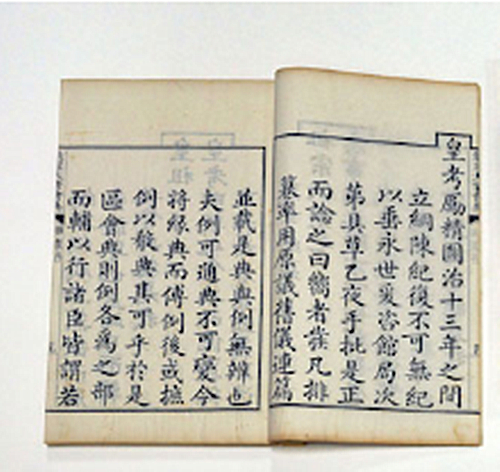 皇考勵精圖治十三年之間
立綱陳紀復不可無紀
以垂永世爰咨館局次
第具草乙夜手批是正
而諭之曰嚮者發凡排
纂率用原議舊儀連篇
並載是典與例無辨也
夫例可通典不可變今
將緣典而傳例後或摭
例以殽典其可乎於是
區會典則例各為之部
而輔以行諸臣皆謂若